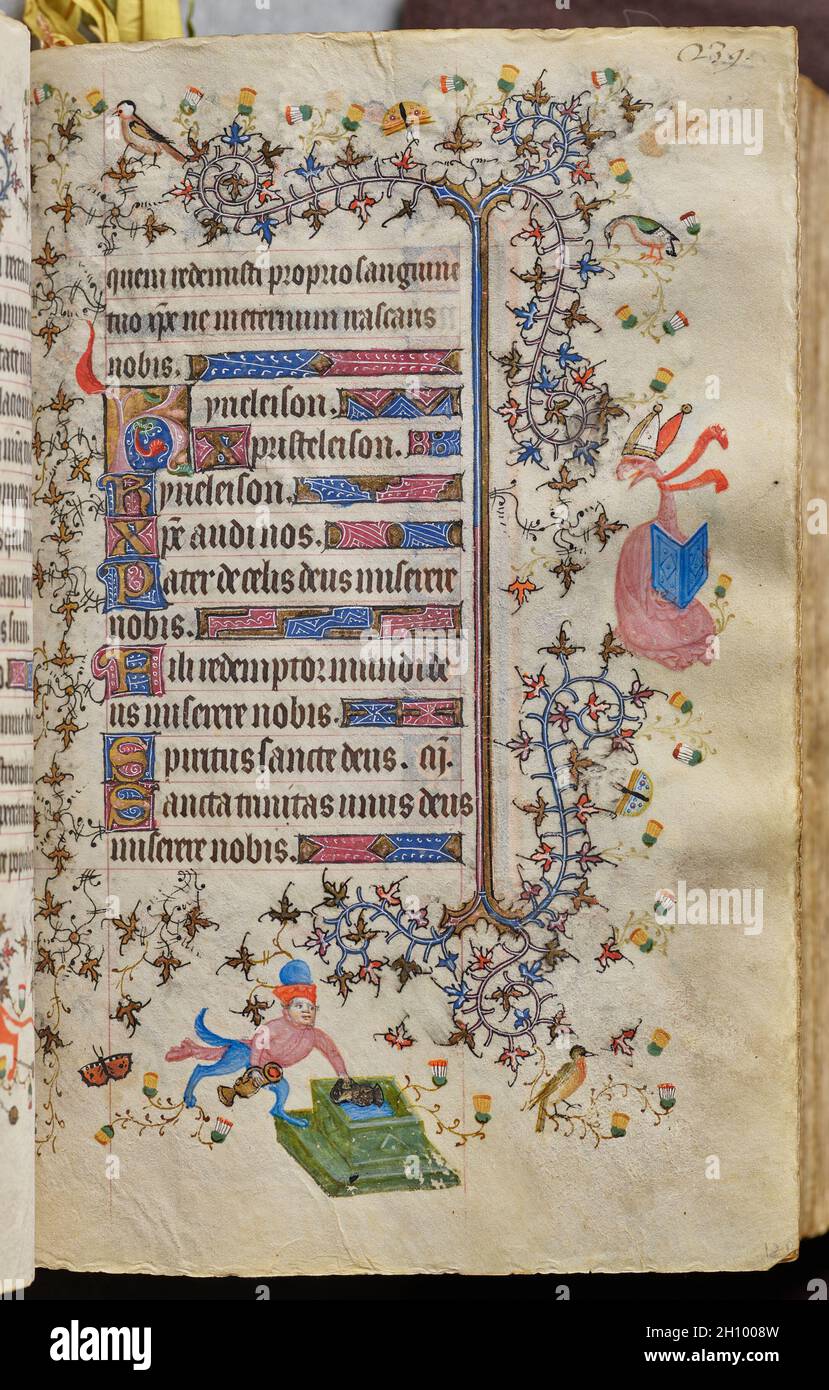 239.
quem redemisti proprio sanguine
tuo xp̃e ne in eternum irascaris
nobis.
Kyrieleison.
Xpristeleison.
Kyrieleison.
Xp̃e audi nos.
Pater de celis deus miserere
nobis.
Fili redemptor mundi de
us miserere nobis.
Spiritus sancte deus. m̃.
Sancta trinitas unus deus
miserere nobis.
alamy
Image ID: 2H1008W
www.alamy.com